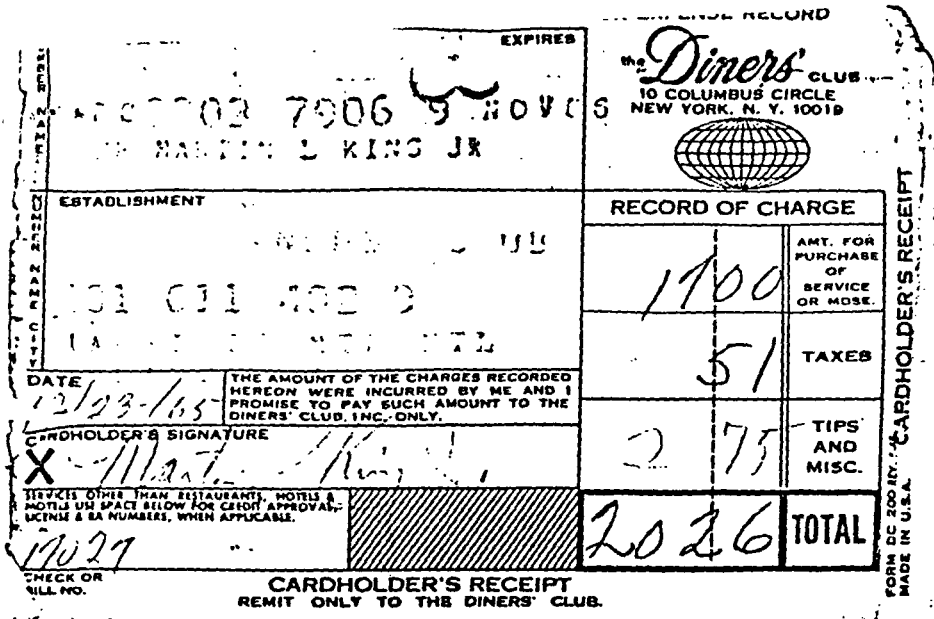 EXPENSE RECORD
EXPIRES
the Diners' CLUB
10 COLUMBUS CIRCLE
NEW YORK, N. Y. 10019
03 7906 9 NOV
MARTIN L KING JR
ESTABLISHMENT
RECORD OF CHARGE
1700
AMT. FOR
PURCHASE
OF
SERVICE
OR MDSE.
51
TAXES
2 75
TIPS
AND
MISC.
2026
TOTAL
DATE
12/23/65
THE AMOUNT OF THE CHARGES RECORDED
HEREON WERE INCURRED BY ME AND I
PROMISE TO PAY SUCH AMOUNT TO THE
DINERS' CLUB, INC. ONLY.
CARDHOLDER'S SIGNATURE
X Martin King Jr.
SERVICES OTHER THAN RESTAURANTS, HOTELS &
MOTELS USE SPACE BELOW FOR CREDIT APPROVAL,
LICENSE & RA NUMBERS, WHEN APPLICABLE.
17027
CHECK OR
BILL NO.
CARDHOLDER'S RECEIPT
REMIT ONLY TO THE DINERS' CLUB.
CARDHOLDER'S RECEIPT
FORM DC 200 REV.
MADE IN U.S.A.